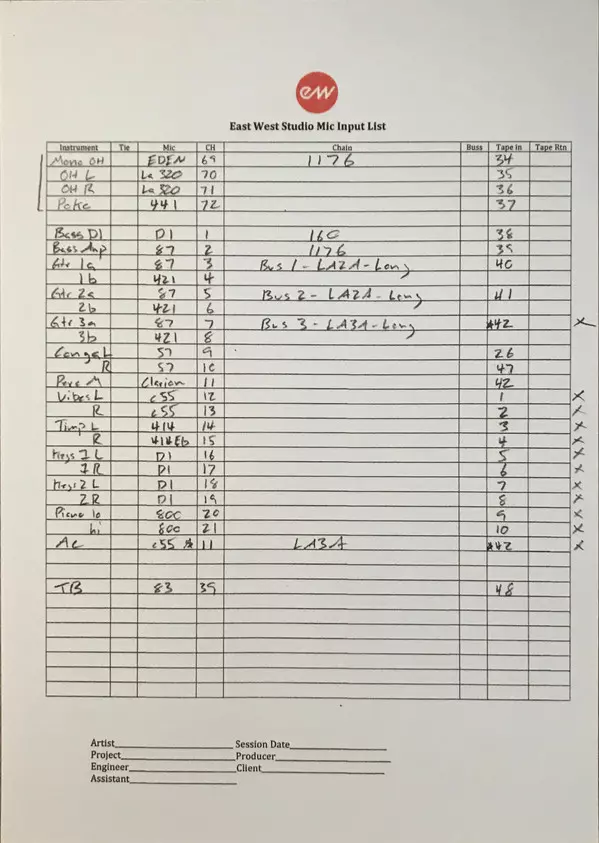 ew
East West Studio Mic Input List
Instrument Tie Mic CH Chain Buss Tape In Tape Rtn
Mono OH EDEN 69 1176 34
OH L La 320 70 35
OH R La 320 71 36
441 72 37
Bass DI DI 1 160 38
Bass Amp 87 2 1176 39
Gtr 1a 87 3 Bus 1 - LA2A - Long 40
1b 421 4
Gtr 2a 87 5 Bus 2 - LA2A - Long 41
2b 421 6
Gtr 3a 87 7 Bus 3 - LA3A - Long *42 X
3b 421 8
Conga L 57 9 26
R 57 10 47
Perc M Clarion 11 42
Vibes L c55 12 1 X
R c55 13 2 X
Timp L 414 14 3 X
R 414Eb 15 4 X
Keys 1 L DI 16 5 X
1R DI 17 6 X
Keys 2 L DI 18 7 X
2R DI 19 8 X
Piano lo 800 20 9 X
hi 800 21 10 X
AC c55 * 11 LA3A *42 X
TB 83 39 48
Artist
Session Date
Project
Producer
Engineer
Client
Assistant